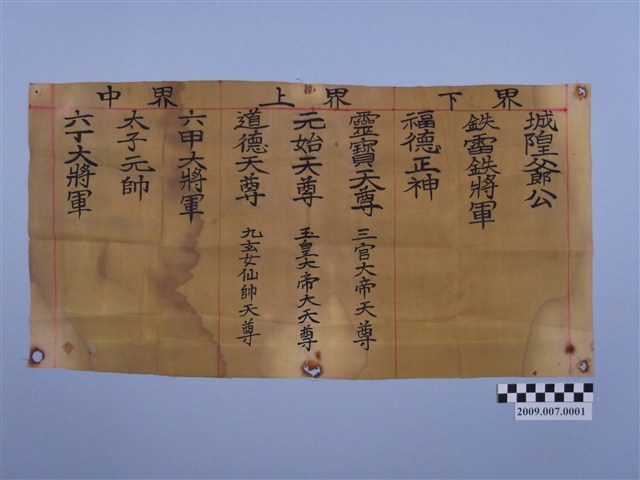 下界
城隍爺公
鉄雷鉄將軍
福德正神
上界
靈寶天尊 三官大帝天尊
元始天尊 玉皇大帝大天尊
道德天尊 九玄女仙帥天尊
中界
六甲大將軍
太子元帥
六丁大將軍
2009.007.0001